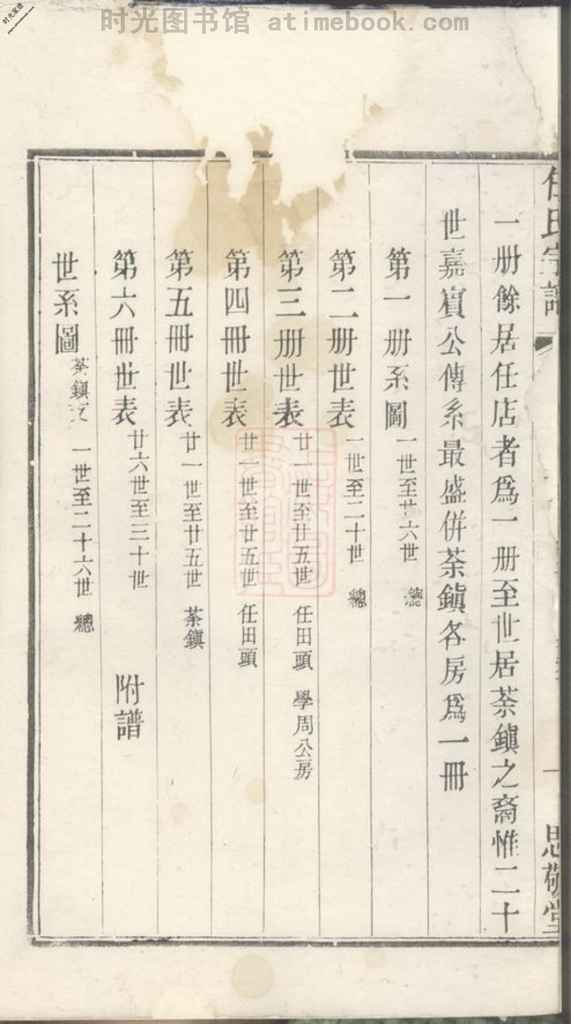 时光图书馆 atimebook.com
时光家谱
任氏宗譜
一
思敬堂
一册餘居任店者爲一册至世居荼鎭之裔惟二十
世嘉賓公傳系最盛併荼鎭各房爲一冊
第一册系圖 一世至廿六世 總
第二册世表 一世至二十世 總
第三册世表 廿一世至廿五世 任田頭 學周公房
第四冊世表 廿一世至廿五世 任田頭
第五冊世表 廿一世至廿五世 荼鎭
第六冊世表 廿六世至三十世 附譜
世系圖 荼鎭支 一世至二十六世 總